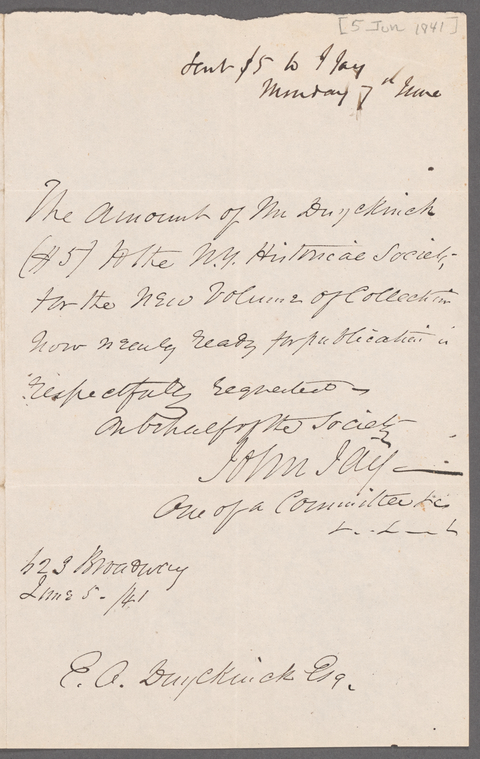 [5 Jun 1841]
Sent $5 to J Jay
Monday 7th June
The Amount of Mr Duyckinck
($5) to the N.Y. Historical Society
for the New Volume of Collection
now nearly ready for publication is
respectfully requested
On behalf of the Society
John Jay
One of a Committee &c
623 Broadway
June 5 - /41
E. A. Duyckinck Esq.